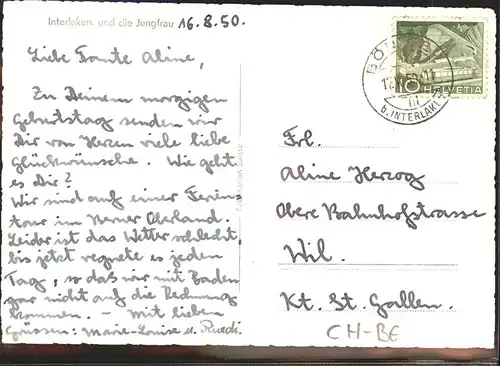 Interlaken und die Jungfrau
16.8.50.
Liebe Tante Aline,
Zu Deinem morgigen
Geburtstag senden wir
Dir von Herzen viele liebe
Glückwünsche. Wie geht
es Dir?
Wir sind auf einer Ferien-
tour im Berner Oberland.
Leider ist das Wetter schlecht,
bis jetzt regnete es jeden
Tag, so daß wir mit Baden
gar nicht auf die Rechnung
kommen. – Mit lieben
Grüssen: Marie-Louise u. Ruedi.
10 HELVETIA
b. INTERLAKEN
Frl.
Aline Herzog
Obere Bahnhofstrasse
Wil.
Kt. St. Gallen.
CH-BE